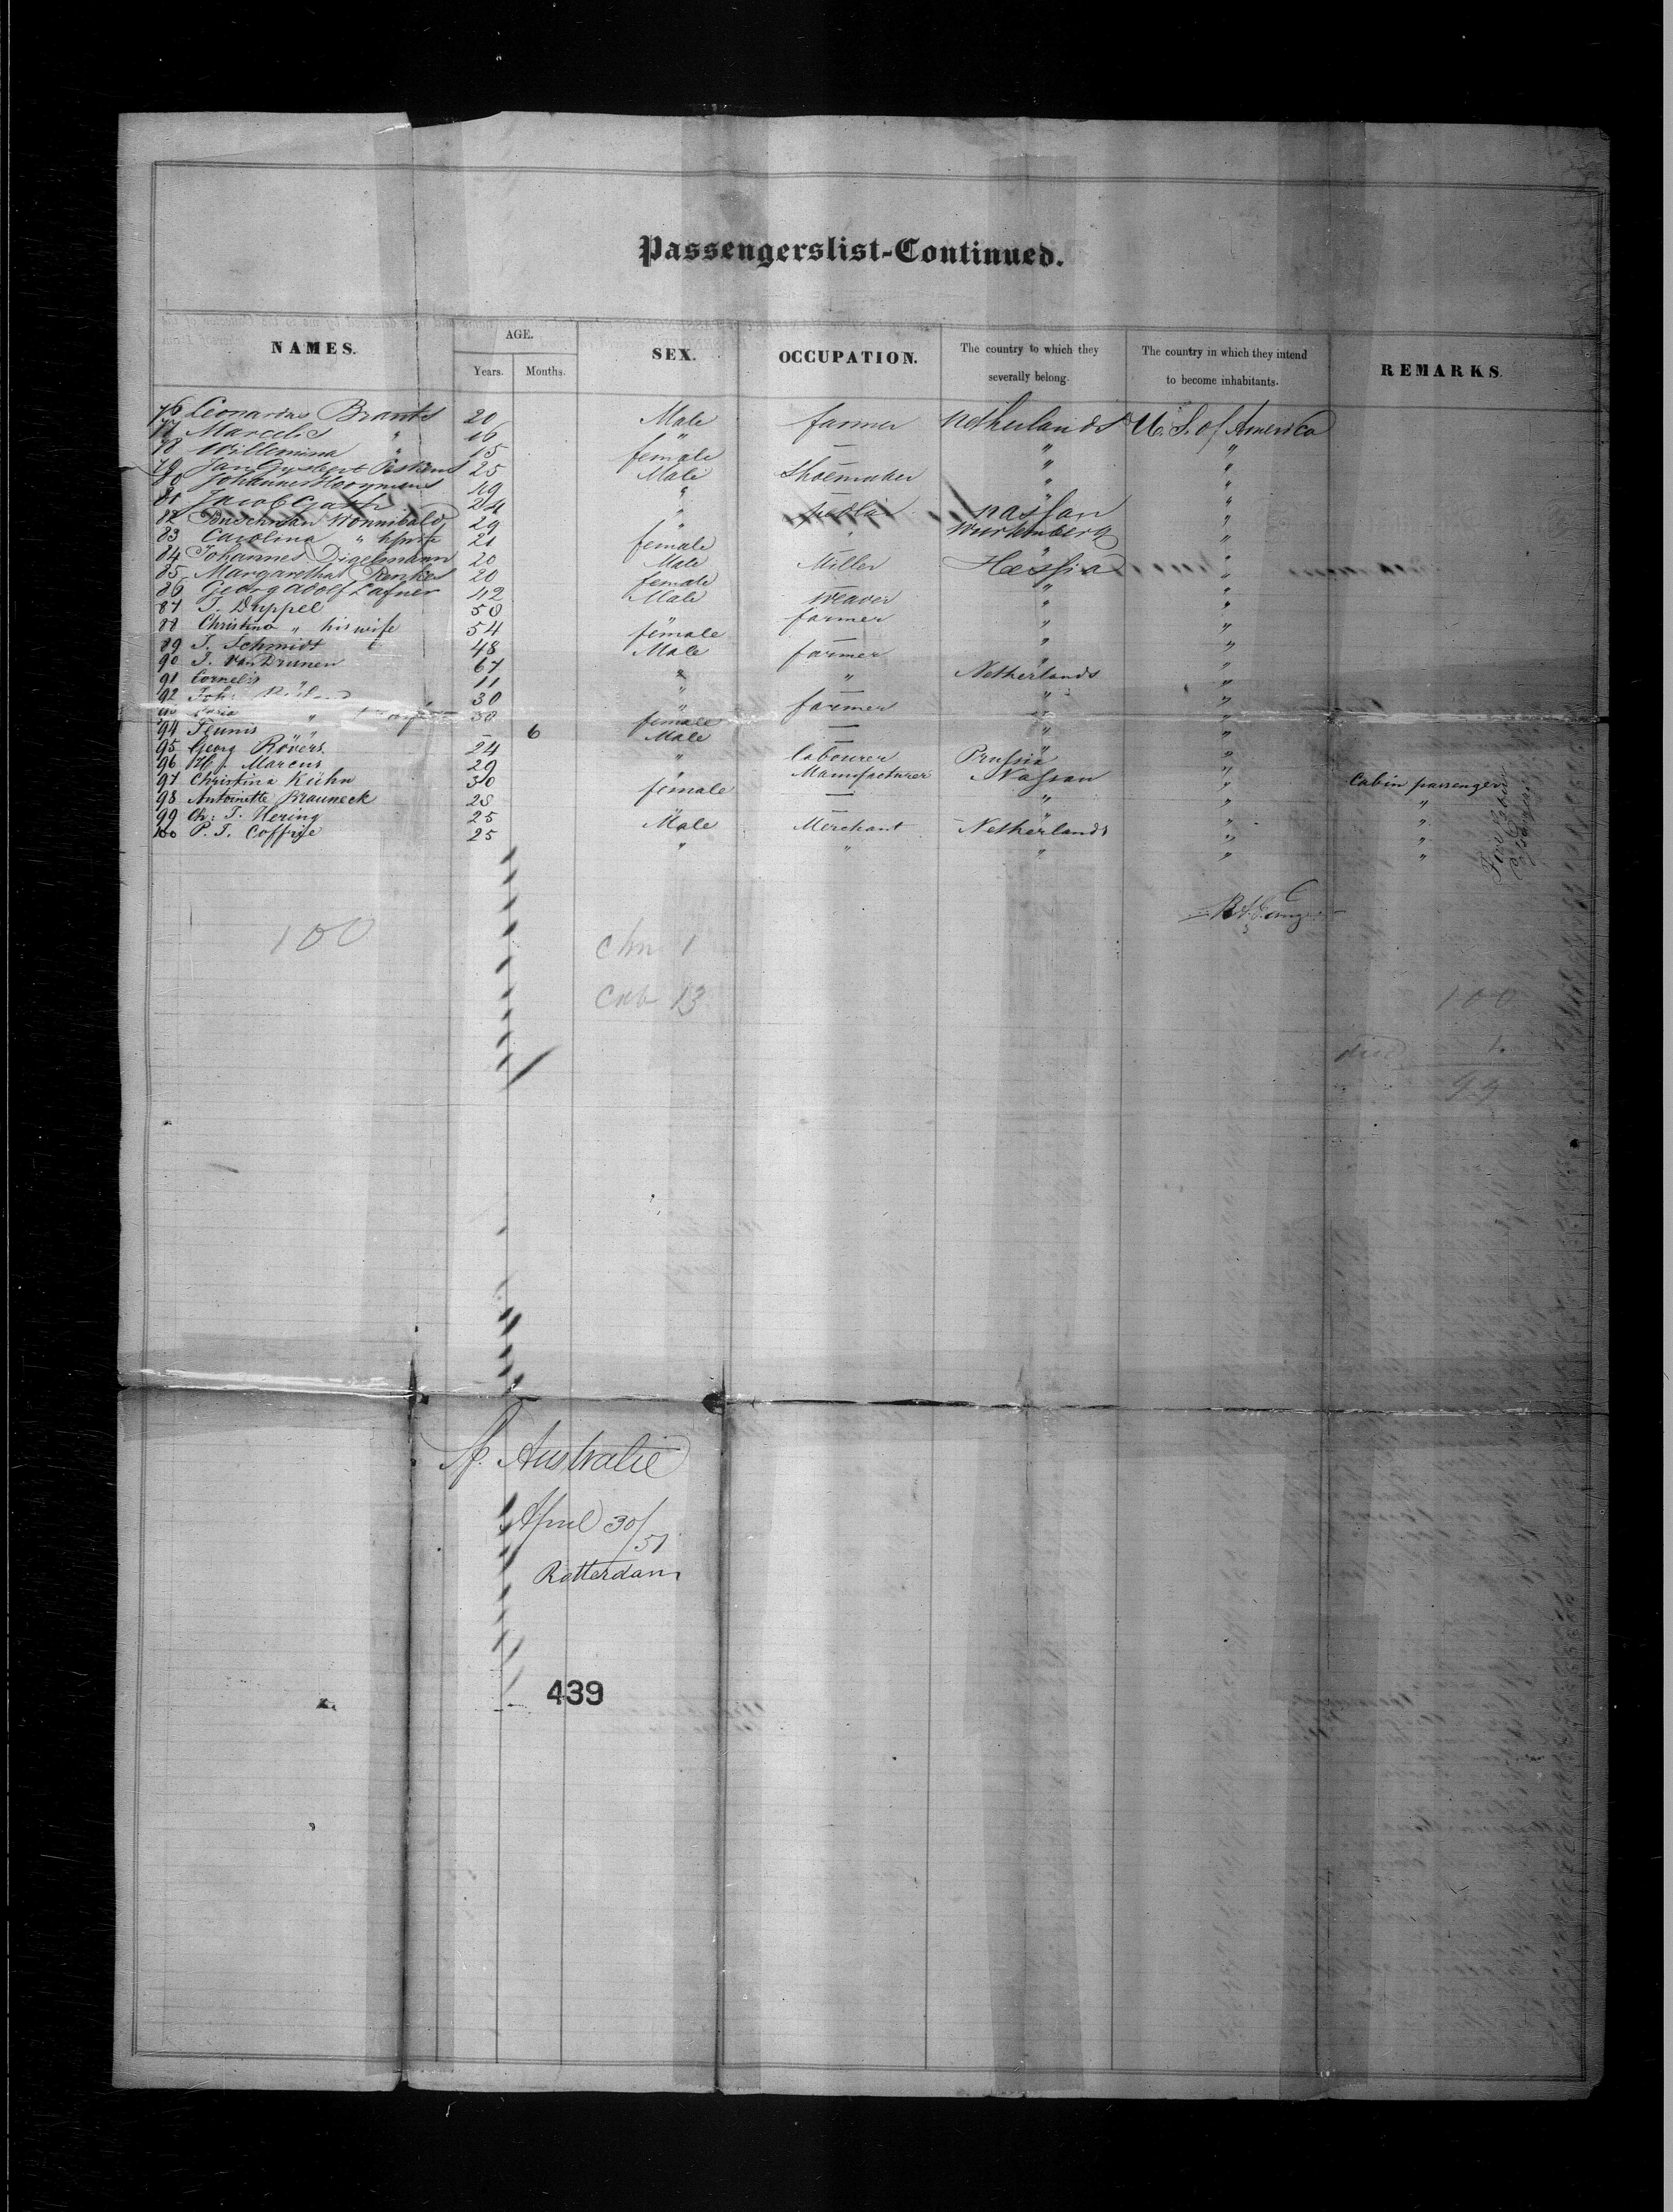 Passengerslist-Continued.
NAMES. AGE. SEX. OCCUPATION. The country to which they severally belong. The country in which they intend to become inhabitants. REMARKS.
Years. Months.
76 Leonardus Brants 20 Male farmer Netherlands U. S. of America
77 Marcelis " 16 " — " "
78 Willemina " 15 female — " "
79 Jan Gysbert 25 Male Shoemaker " "
80 Johannes Hooymans 49 " — " "
81 Jacob 24 " Nassau "
82 Wonnibald 29 " " Wurtemberg "
83 Carolina " 21 female — " "
84 Johannes Digelmann 20 Male Miller Hessia "
85 Margaretha 20 female — " "
86 Georg Adolf Lafner 42 Male Weaver " "
87 J. Duppel 58 " farmer " "
88 Christina " his wife 54 female — " "
89 J. Schmidt 48 Male farmer " "
90 J. van Drunen 67 " " Netherlands "
91 Cornelis 11 " — " "
92 Joh: 30 " farmer " "
93 " 30 female — " "
94 Teunis " — 6 Male — " "
95 Georg Rövers 24 " labourer Prussia "
96 Marcus 29 " Manufacturer Nassau " Cabin passenger
97 Christina Kühn 30 female — " " "
98 Antoinette Brauneck 28 " — " " "
99 Ch: J. Hering 25 Male Merchant Netherlands " "
100 P. J. Coffrije 25 " " " " "
100
Chn 1
Cab 13
100
died 1
99
Australie
April 30/51
Rotterdam
439